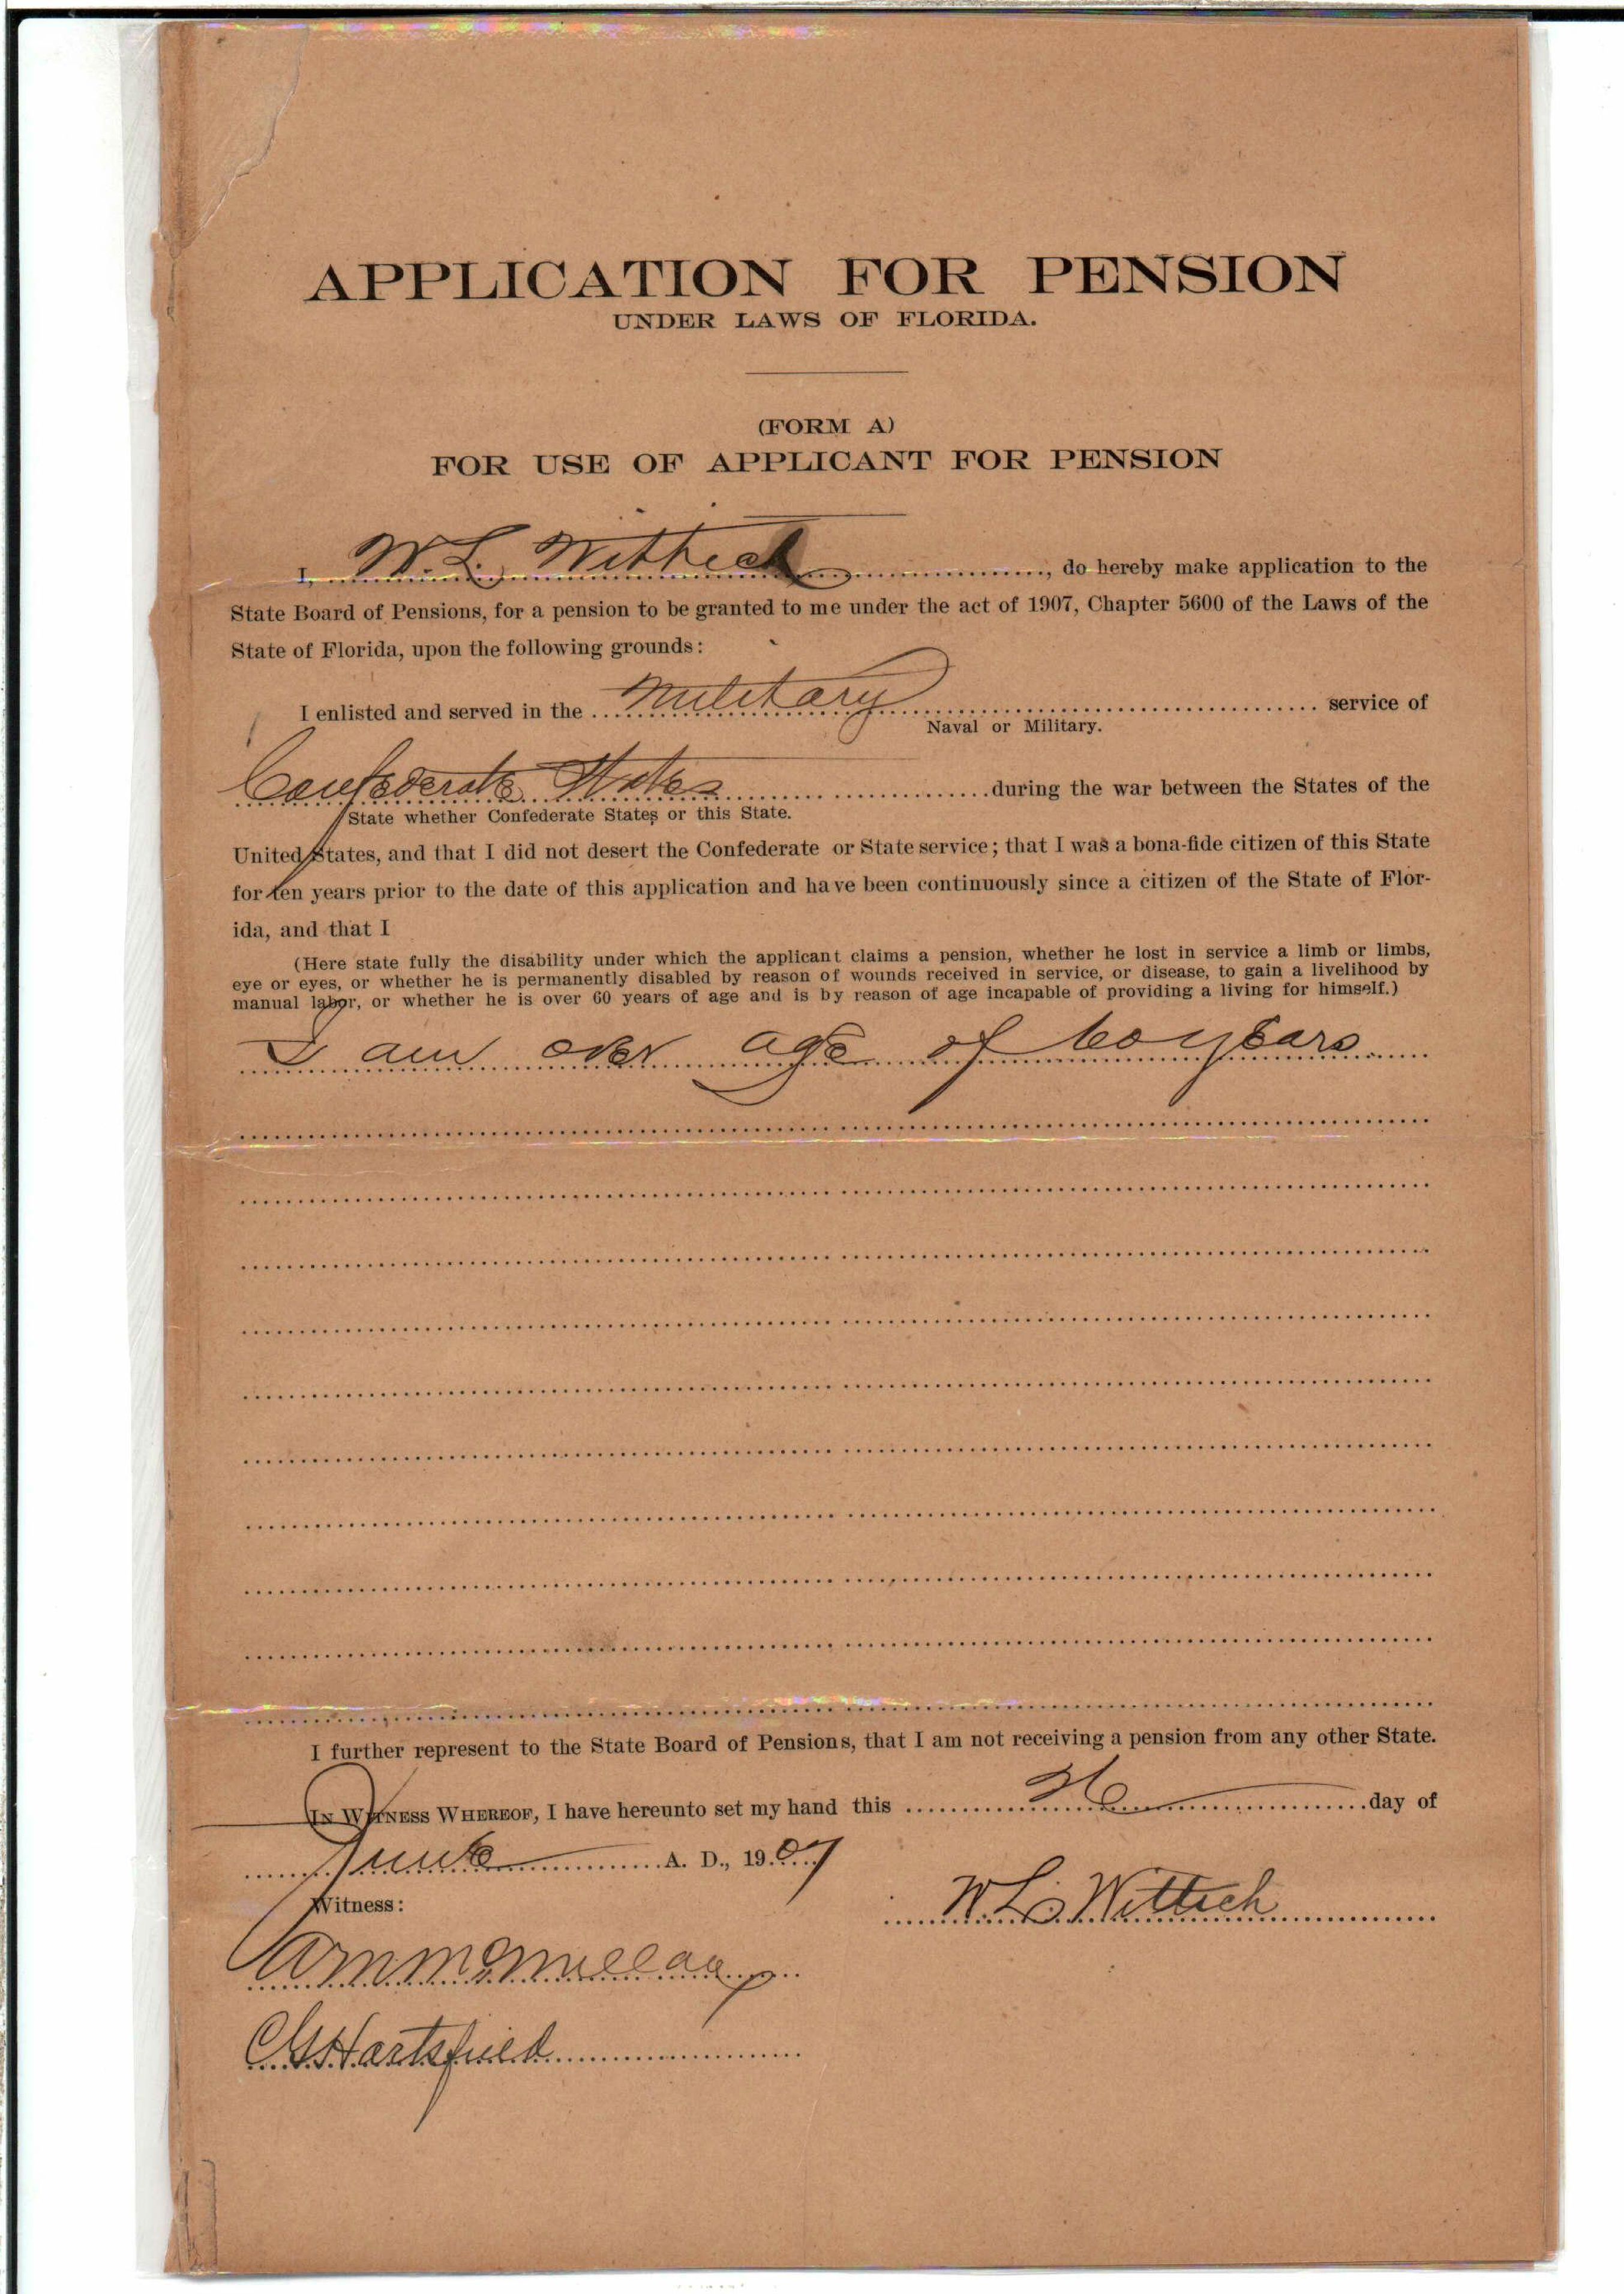 APPLICATION FOR PENSION
UNDER LAWS OF FLORIDA.
(FORM A)
FOR USE OF APPLICANT FOR PENSION
I, W. L. , do hereby make application to the
State Board of Pensions, for a pension to be granted to me under the act of 1907, Chapter 5600 of the Laws of the
State of Florida, upon the following grounds:
I enlisted and served in the Military service of
Naval or Military.
Confederate States during the war between the States of the
State whether Confederate States or this State.
United States, and that I did not desert the Confederate or State service; that I was a bona-fide citizen of this State
for ten years prior to the date of this application and have been continuously since a citizen of the State of Flor-
ida, and that I
(Here state fully the disability under which the applicant claims a pension, whether he lost in service a limb or limbs,
eye or eyes, or whether he is permanently disabled by reason of wounds received in service, or disease, to gain a livelihood by
manual labor, or whether he is over 60 years of age and is by reason of age incapable of providing a living for himself.)
I am over age of 60 years
I further represent to the State Board of Pensions, that I am not receiving a pension from any other State.
IN WITNESS WHEREOF, I have hereunto set my hand this day of
June A. D., 1907
Witness:
W. L. Wittich
C G Hartsfield